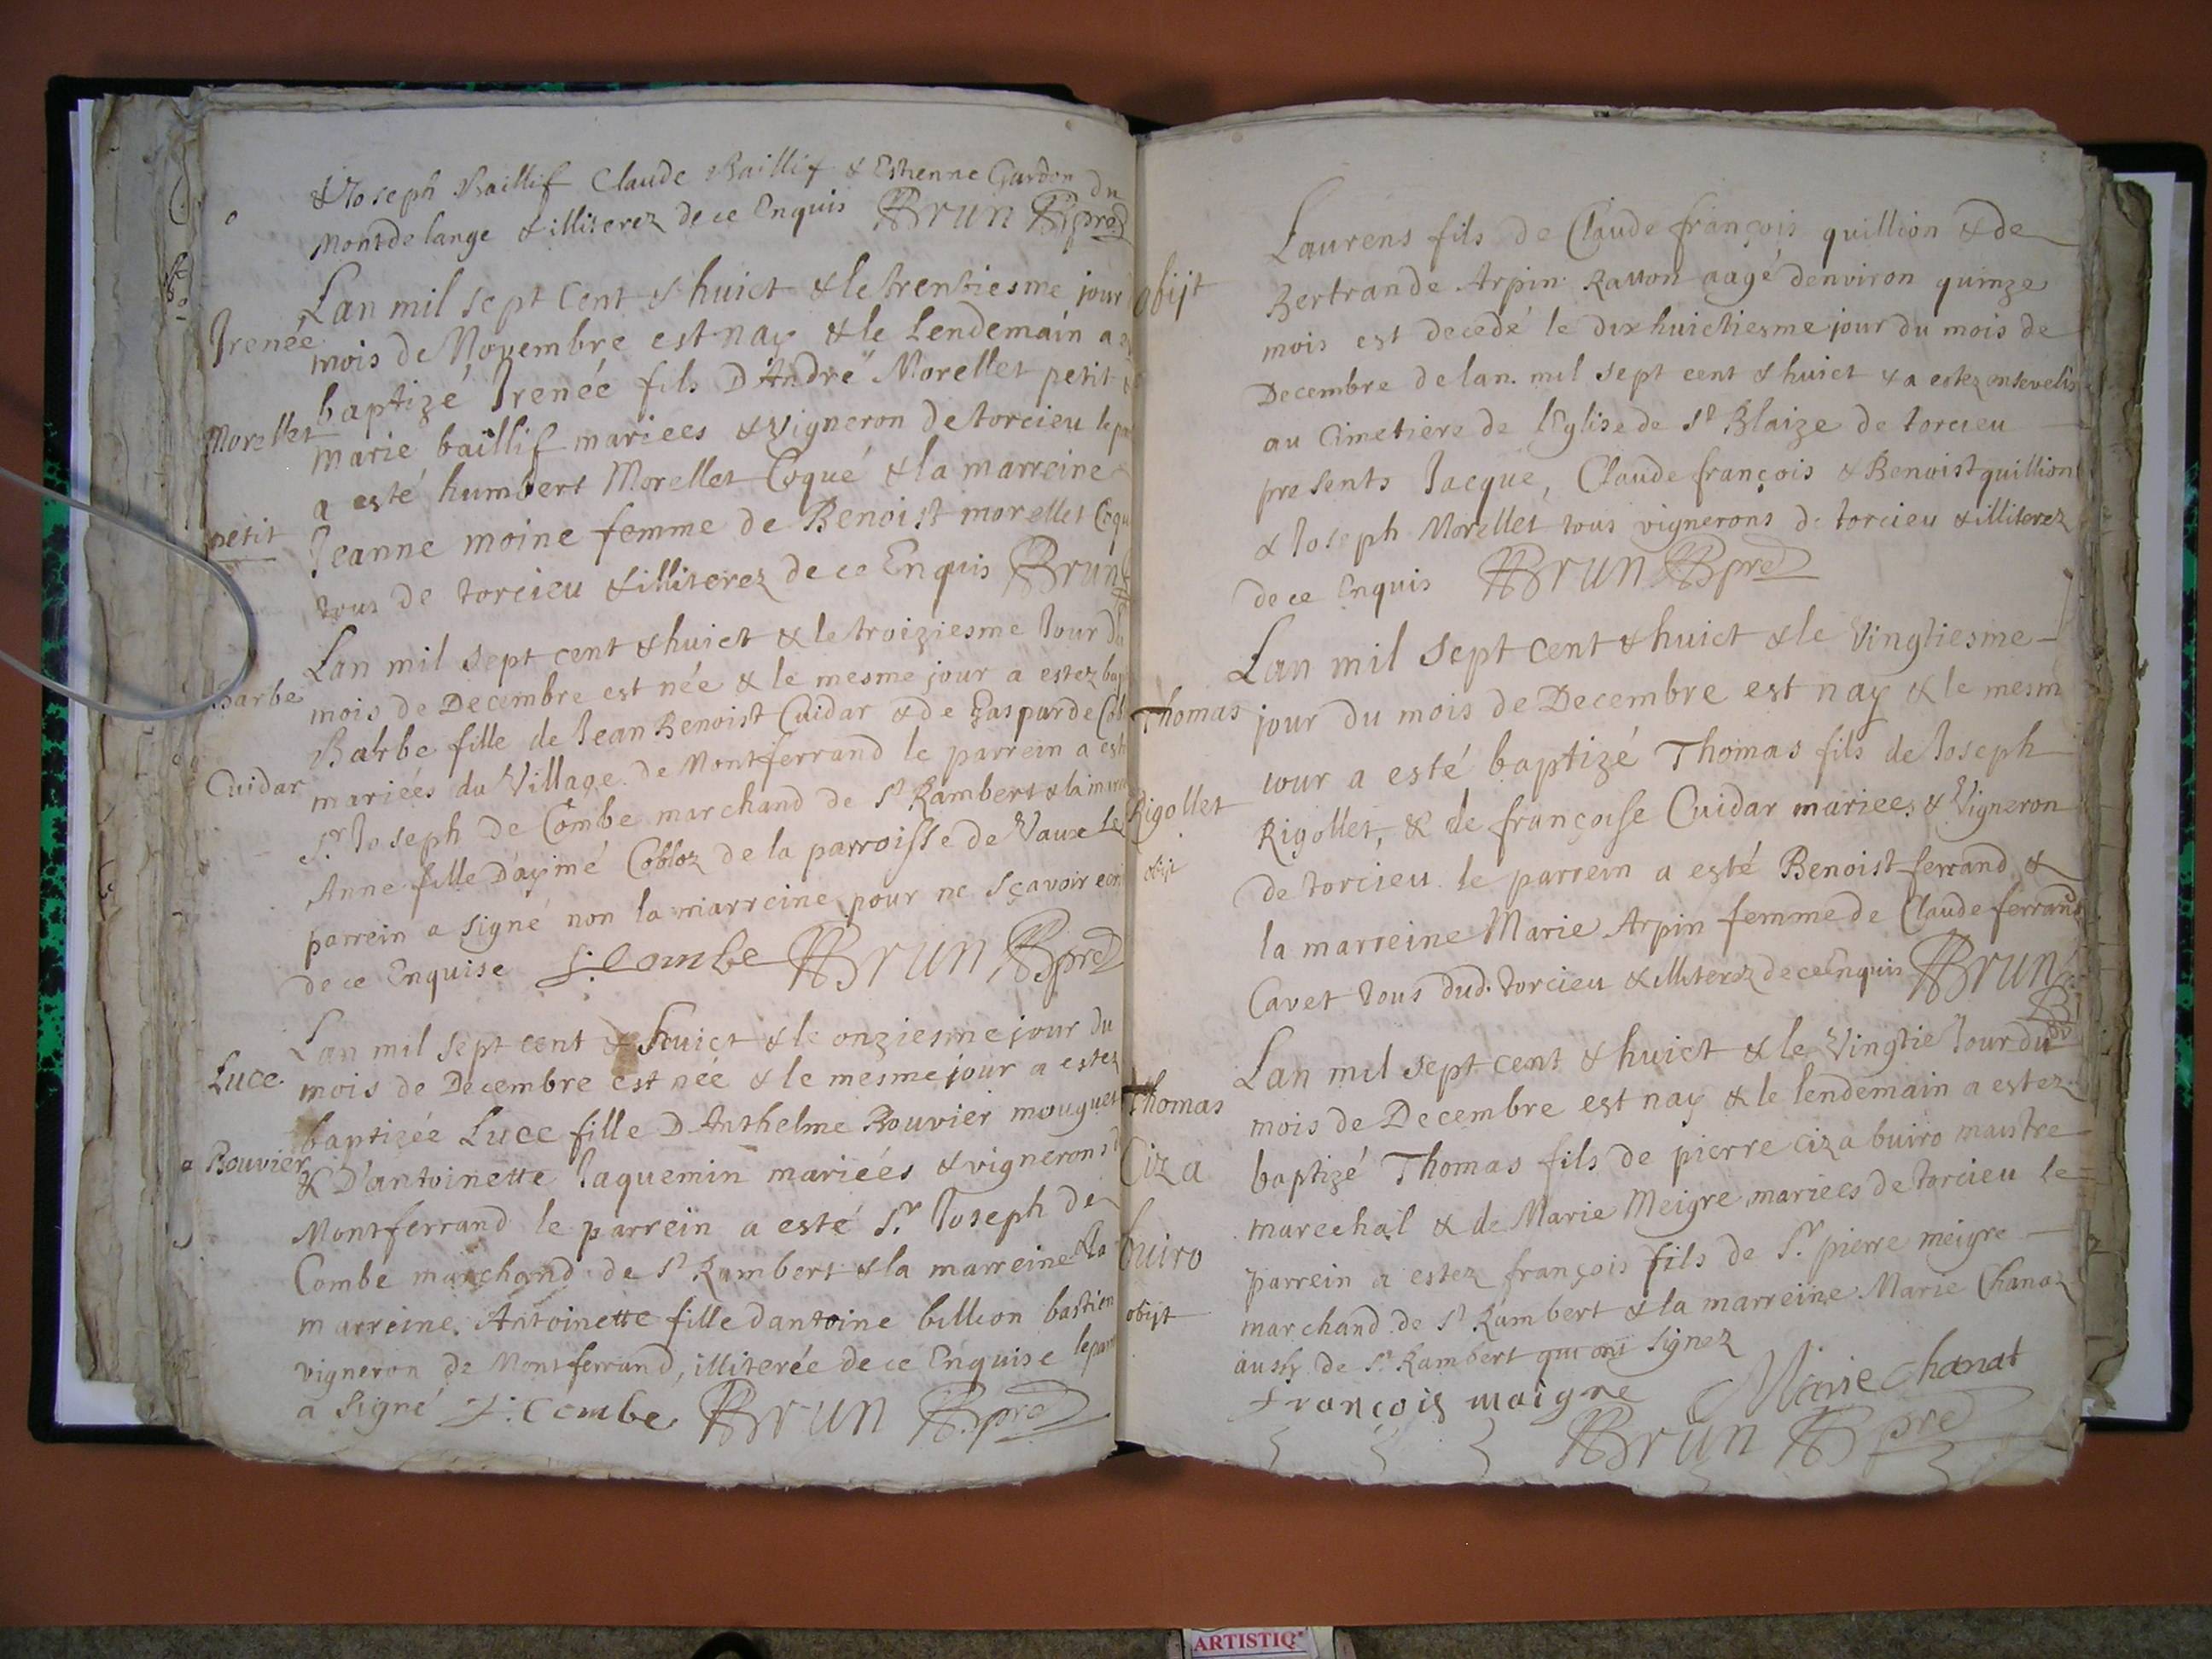 & Joseph Baillif Claude Baillif & Estienne Gardon du
Montdelange & illiterez de ce Enquis BRUN Bpre
Lan mil sept Cent & huict & le trentiesme jour
Irenée
mois de Novembre est nay & le Lendemain a
baptizé Irenée fils D'André Morellet petit
Morellet
marie baillif mariees & vigneron de torcieu le
a esté humbert Morellet Coqué & la marreine
petit
Jeanne moine femme de Benoist morellet Coqu
tous de torcieu & illiterez de ce Enquis BRUN
Lan mil sept cent & huict & le troiziesme Jour du
Barbe
mois de Decembre est née & le mesme jour a estez bap
Barbe fille de Jean Benoist Cuidar & de Gasparde Cob
Cuidar
mariées du Village de Montferrand le parrein a est
Sr Joseph de Combe marchand de St Rambert & la marr
Anne fille D'aymé Cobloz de la parroisse de Vaux Le
parrein a signé non la marreine pour ne sçavoir ecri
de ce Enquise J: Combe BRUN Bpre
Lan mil sept cent & huict & le onziesme jour du
Luce
mois de Decembre est née & le mesme jour a estez
baptizée Luce fille D'Anthelme Bouvier mouguet
Bouvier
& D'antoinette Jaquemin mariées & vignerons d
Montferrand le parrein a esté Sr Joseph de
Combe marchand de St Rambert & la marreine & la
marreine Antoinette fille dantoine billion bastien
vigneron de Montferrand, illiterée de ce Enquise le parr
a signé J: Combe BRUN Bpre
Laurens fils de Claude françois quillion & de
obijt
Bertrande Arpin Ravon aagé denviron quinze
mois est decedé le dix huictiesme jour du mois de
Decembre de lan mil sept cent & huict & a estez ensevelis
au Cimetiere de l'Eglise de St Blaize de torcieu
presents Jacque, Claude françois & Benoist quillion
& Joseph Morellet tous vignerons de torcieu & illiterez
de ce Enquis BRUN Bpre
Lan mil sept cent & huict & le Vingtiesme
Thomas
jour du mois de Decembre est nay & le mesm
jour a esté baptizé Thomas fils de Joseph
Rigollet
Rigollet, & de françoise Cuidar mariees & Vigneron
obijt
de torcieu le parrein a esté Benoist ferrand &
la marreine Marie Arpin femme de Claude ferrand
Cavet tous dud. torcieu & illiterez de ce Enquis BRUN
Lan mil sept cent & huict & le Vingtie Jour du
Thomas
mois de Decembre est nay & le lendemain a estez
baptizé Thomas fils de pierre ciza buiro maistre
Ciza
marechal & de Marie Meigre mariees de torcieu le
buiro
parrein a estez françois fils de Sr pierre meigre
marchand de St Rambert & la marreine Marie Chanaz
obijt
aussy de St Rambert qui ont signez
françois maigre Marie Chanat
BRUN Bpre
ARTISTIQ